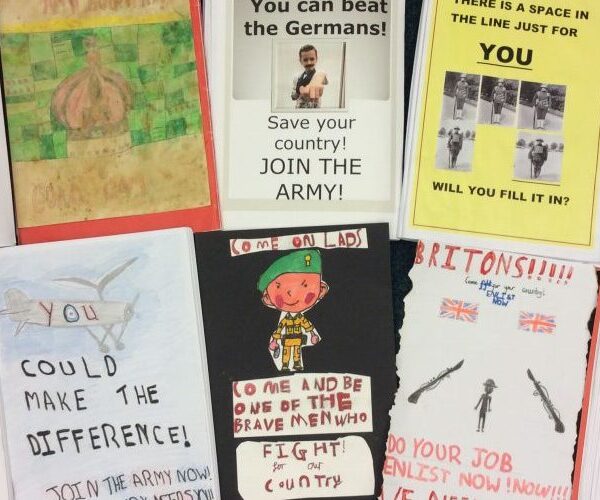 You can beat
the Germans!
Save your
country!
JOIN THE
ARMY!
THERE IS A SPACE IN
THE LINE JUST FOR
YOU
WILL YOU FILL IT IN?
YOU
COULD
MAKE THE
DIFFERENCE!
JOIN THE ARMY NOW!
COME ON LADS
COME AND BE
ONE OF THE
BRAVE MEN WHO
FIGHT!
for our
COUNTRY
BRITONS!!!!!!
for your country!
ENLIST
NOW
DO YOUR JOB
ENLIST NOW!NOW!!!